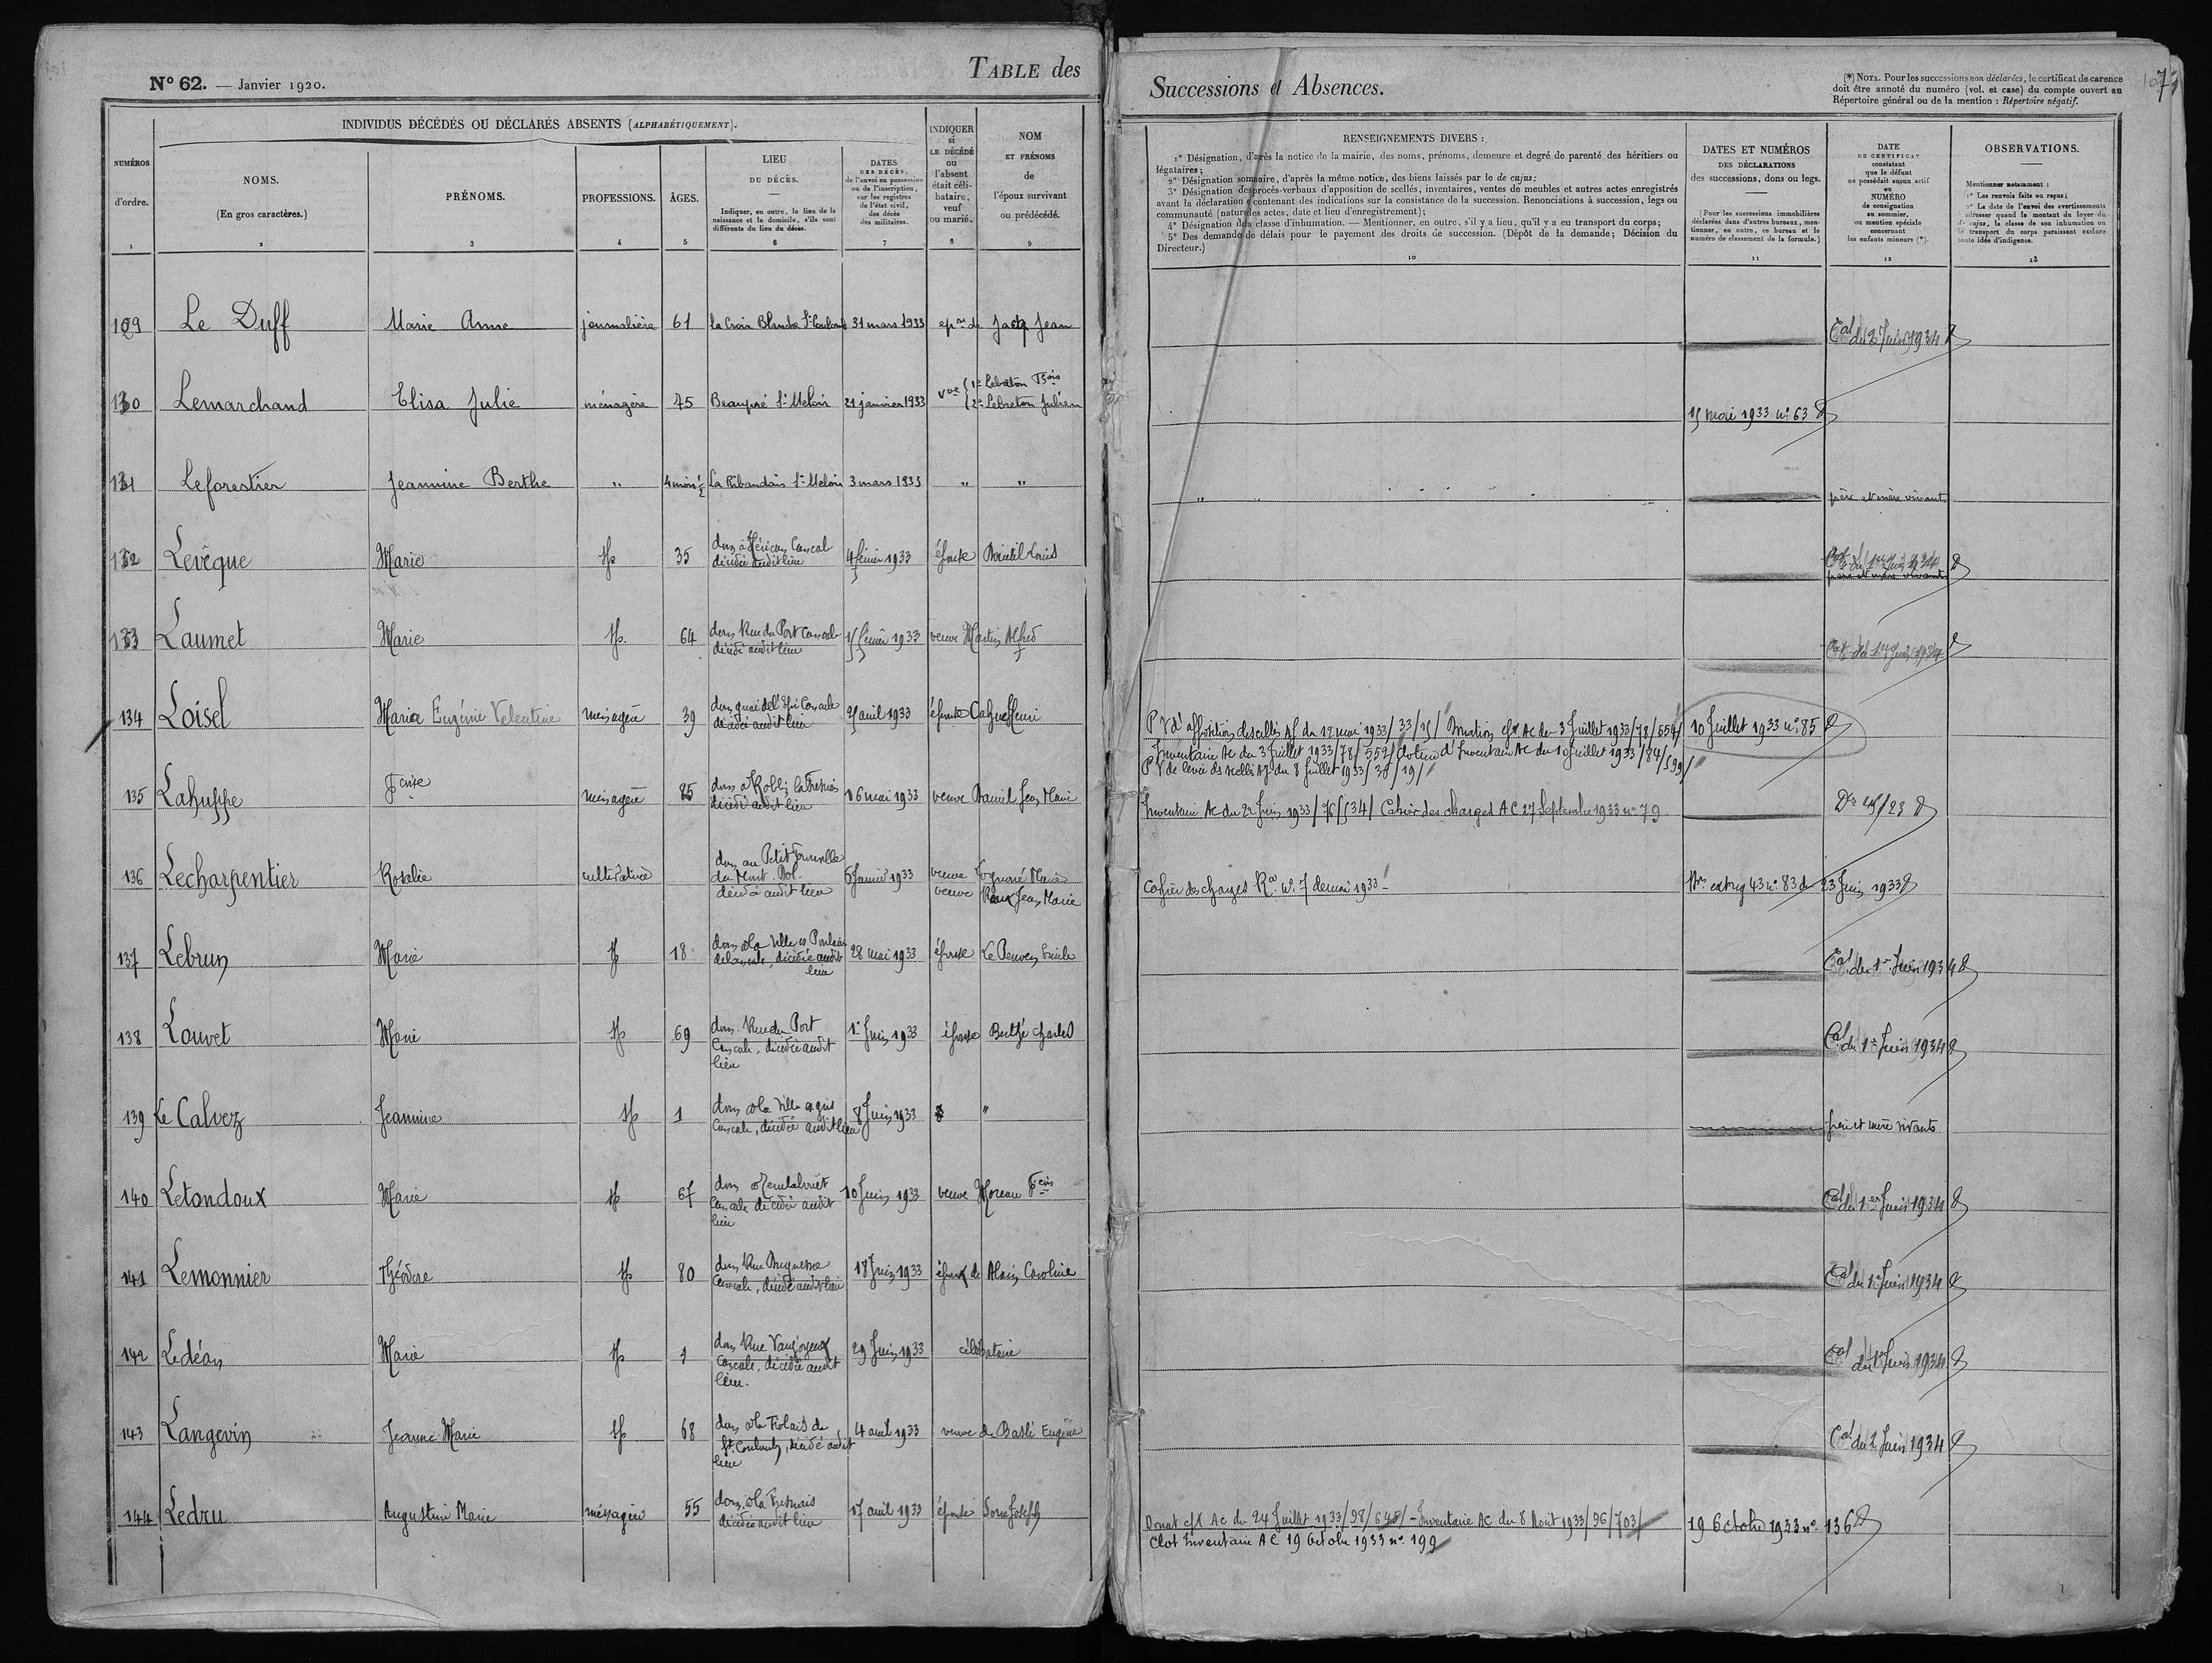 N° 62. — Janvier 1920.
TABLE des
Successions et Absences.
(*) NOTA. Pour les successions non déclarées, le certificat de carence
doit être annoté du numéro (vol. et case) du compte ouvert au
Répertoire général ou de la mention : Répertoire négatif.
NUMÉROS
d'ordre.
1
INDIVIDUS DÉCÉDÉS OU DÉCLARÉS ABSENTS (ALPHABÉTIQUEMENT).
NOMS.
(En gros caractères.)
2
PRÉNOMS.
3
PROFESSIONS.
4
ÂGES.
5
LIEU
DU DÉCÈS.
Indiquer, en outre, le lieu de la
naissance et le domicile, s'ils sont
différents du lieu du décès.
6
DATES
DES DÉCÈS,
de l'envoi en possession
ou de l'inscription,
sur les registres
de l'état civil,
des décès
des militaires.
7
INDIQUER
si
LE DÉCÉDÉ
ou
l'absent
était céli-
bataire,
veuf
ou marié.
8
NOM
ET PRÉNOMS
de
l'époux survivant
ou prédécédé.
9
RENSEIGNEMENTS DIVERS :
1° Désignation, d'après la notice de la mairie, des noms, prénoms, demeure et degré de parenté des héritiers ou
légataires;
2° Désignation sommaire, d'après la même notice, des biens laissés par le de cujus;
3° Désignation des procès-verbaux d'apposition de scellés, inventaires, ventes de meubles et autres actes enregistrés
avant la déclaration et contenant des indications sur la consistance de la succession. Renonciations à succession, legs ou
communauté (nature des actes, date et lieu d'enregistrement);
4° Désignation de la classe d'inhumation. — Mentionner, en outre, s'il y a lieu, qu'il y a eu transport du corps;
5° Des demandes de délais pour le payement des droits de succession. (Dépôt de la demande; Décision du
Directeur.)
10
DATES ET NUMÉROS
DES DÉCLARATIONS
des successions, dons ou legs.
(Pour les successions immobilières
déclarées dans d'autres bureaux, men-
tionner, en outre, ce bureau et le
numéro de classement de la formule.)
11
DATE
DU CERTIFICAT
constatant
que le défunt
ne possédait aucun actif
ou
NUMÉRO
de consignation
au sommier,
ou mention spéciale
concernant
les enfants mineurs (*).
12
OBSERVATIONS.
Mentionner notamment :
1° Les renvois faits ou reçus;
2° La date de l'envoi des avertissements
adresser quand le montant du loyer du
de cujus, la classe de son inhumation ou
le transport du corps paraissent exclure
toute idée d'indigence.
13
129 Le Duff Marie Anne journalière 61 La Croix Blanche St Coulomb 31 mars 1933 ep.se de Jacq Jean
Cat du 2 Juin 1934
130 Lemarchand Elisa Julie ménagère 75 Beaupré St Meloir 21 janvier 1933 Vve 1° Lebreton Fçois
2° Lebreton Julien
15 mai 1933 n° 63
131 Leforestier Jeannine Berthe " 4 mois ½ La Ribandais St Meloir 3 mars 1933 " "
père et mère vivants
132 Levêque Marie sp 35 Cancale
décédée audit lieu 4 février 1933 épouse Louis
père et mère vivants
133 Laumet Marie sp. 64 dom Rue du Port Cancale
décédée audit lieu 15 février 1933 veuve Martin Alfred
Cat du 1er Juin 1934
134 Loisel Maria Eugénie Valentine ménagère 39 Cancale
décédée audit lieu avril 1933 épouse Cahue Henri
P V d'apposition des scellés du 12 mai 1933/33/15/ Donation Ac du 3 Juillet 1933/78/
Inventaire Ac du 3 Juillet 1933/78/552/ Cloture d'Inventaire Ac du 10 Juillet 1933/84/599/
P V de levée des scellés du 8 Juillet 1933/38/19/
10 Juillet 1933 n° 85
135 Lahuppe Fçoise ménagère 85
décédée audit lieu 16 mai 1933 veuve Jean Marie
Inventaire Ac du 22 Juin 1933/76/534/ Cahier des charges AC 27 Septembre 1933 n° 79
136 Lecharpentier Rosalie cultivatrice
décédée audit lieu 1933 veuve
veuve Roux Jean Marie
Cahier des charges n° 7 de mai 1933
n° 83 du 23 Juin 1933
137 Lebrun Marie sp 18
Cancale, décédée audit
lieu 28 mai 1933 épouse Le Penven Emile
Cat du 1er Juin 1934
138 Louvet Marie sp 69 dom Rue du Port
Cancale, décédée audit
lieu 1er Juin 1933 épouse Berthé Charles
Cat du 1er Juin 1934
139 Le Calvez Jeannine sp 1
Cancale, décédée audit lieu 8 Juin 1933 "
père et mère vivants
140 Letondoux Marie sp 67
Cancale décédée audit
lieu 10 Juin 1933 veuve Moreau Fçois
Cat du 1er Juin 1934
141 Lemonnier Théodore sp 80 dom Rue Duquesne
Cancale, décédé audit lieu 18 Juin 1933 époux de Alain Caroline
Cat du 1er Juin 1934
142 Ledéan Marie sp 1 dom Rue
Cancale, décédée audit
lieu. 29 Juin 1933 célibataire
Cat du 1er Juin 1934
143 Langevin Jeanne Marie sp 68
St Coulomb, décédé audit
lieu 4 avril 1933 veuve de Baslé Eugène
Cat du 2 Juin 1934
144 Ledru Augustine Marie ménagère 55 dom à la Fresnais
décédée audit lieu 17 avril 1933 épouse Joseph
Donat Ac du 24 Juillet 1933/98/ – Inventaire AC du 8 Août 1933/96/703/
Clot Inventaire AC 19 Octobre 1933 n° 199
19 Octobre 1933 n° 136